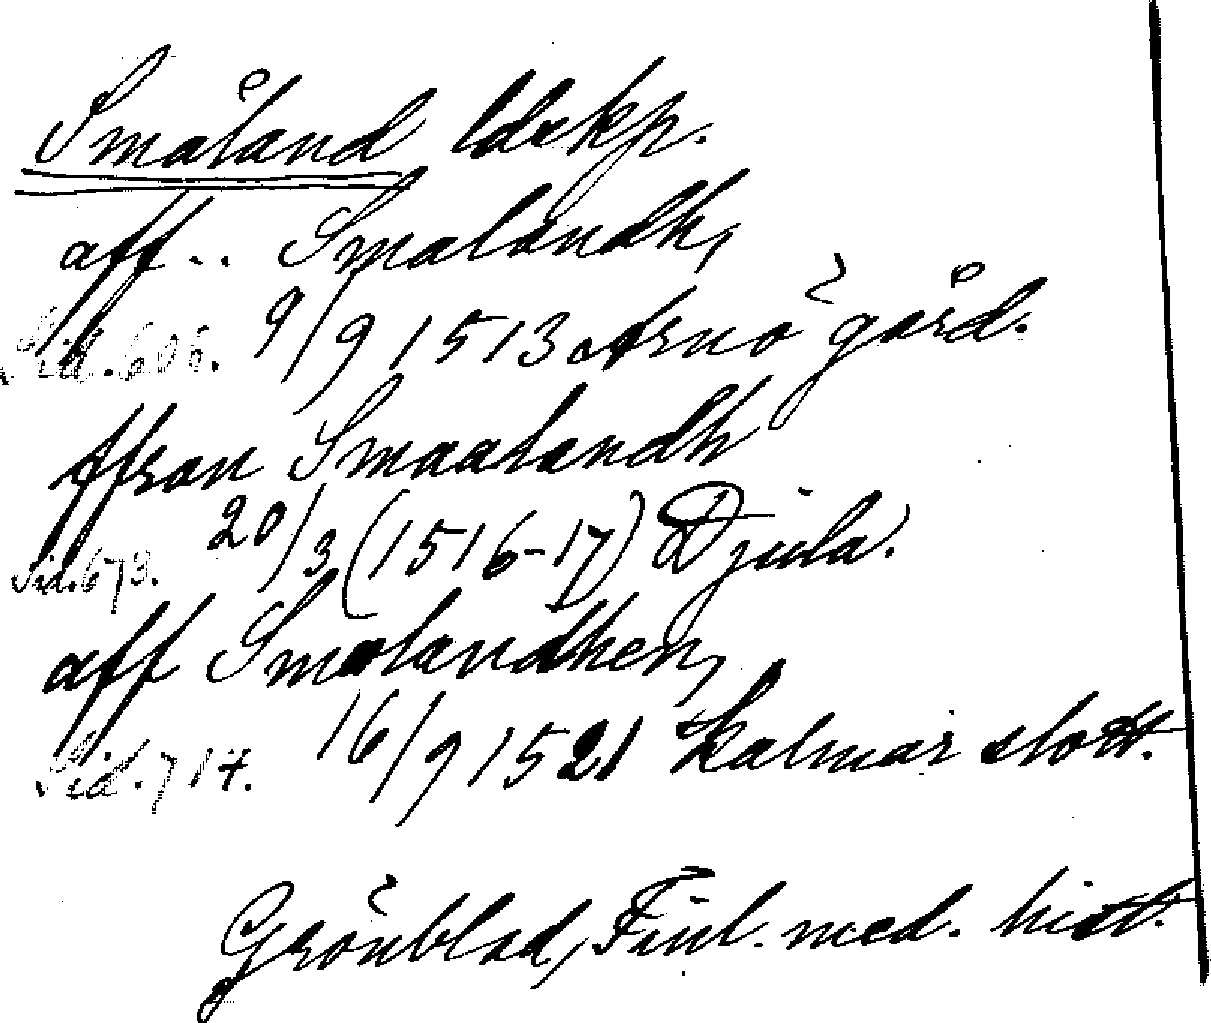 Småland ldskp.
aff.. Smalandh,
Sid. 606. 9/9 1513 Arnö gård.
ffran Smaalandh
Sid. 673. 20/3 (1516-17) Djula.
aff Smolandhen,
Sid. 717. 16/9 1521 Kalmar slott.
Grönblad, Finl. med. hist.